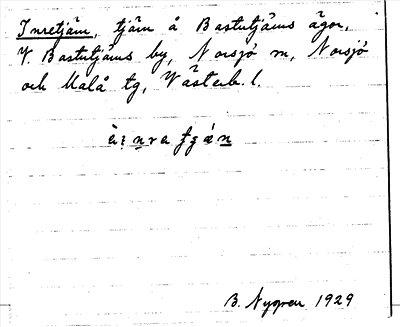 Inretjäm, tjäm å Bastutjäms ägor,
V. Bastutjäms by, Norsjö sn, Norsjö
och Malå tg, Västerb. l.
B. Nygren 1929